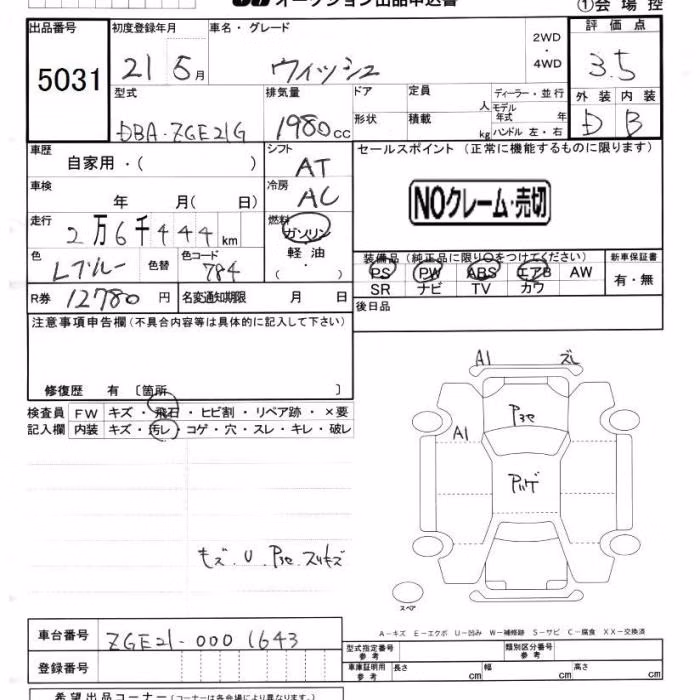 オークション出品申込書 ①会場控
出品番号 初度登録年月 車名・グレード 2WD・4WD 評価点
5031 21 5月 ウィッシュ 3.5
型式 排気量 ドア 定員 人 ディーラー・並行 外装 内装
DBA-ZGE21G 1980cc 形状 積載 kg モデル年式 年 ハンドル 左・右 D B
車歴 自家用・( ) シフト AT セールスポイント (正常に機能するものに限ります)
車検 年 月( 日) 冷房 AC NOクレーム・売切
走行 2万6千444km 燃料 ガソリン
軽油
・
( )
色 Lブルー 色替 色コード 784
装備品 (純正品に限り○をつけてください) 新車保証書
PS PW ABS エアB AW 有・無
SR ナビ TV カワ
R券 12780円 名変通知期限 月 日 後日品
注意事項申告欄(不具合内容等は具体的に記入して下さい)
修復歴 有 〔箇所 〕
検査員 FW キズ・飛石・ヒビ割・リペア跡・×要
記入欄 内装 キズ・汚レ・コゲ・穴・スレ・キレ・破レ
A1 ズレ
A1
キズ.U.P3セ スリキズ
スペア
A-キズ E-エクボ U-凹み W-補修跡 S-サビ C-腐食 XX-交換済
車台番号 ZGE21-0001643
登録番号
型式指定番号 参考 類別区分番号 参考
車庫証明用 参考 長さ cm 幅 cm 高さ cm
希望出品コーナー(コーナーは各会場により異なります。)